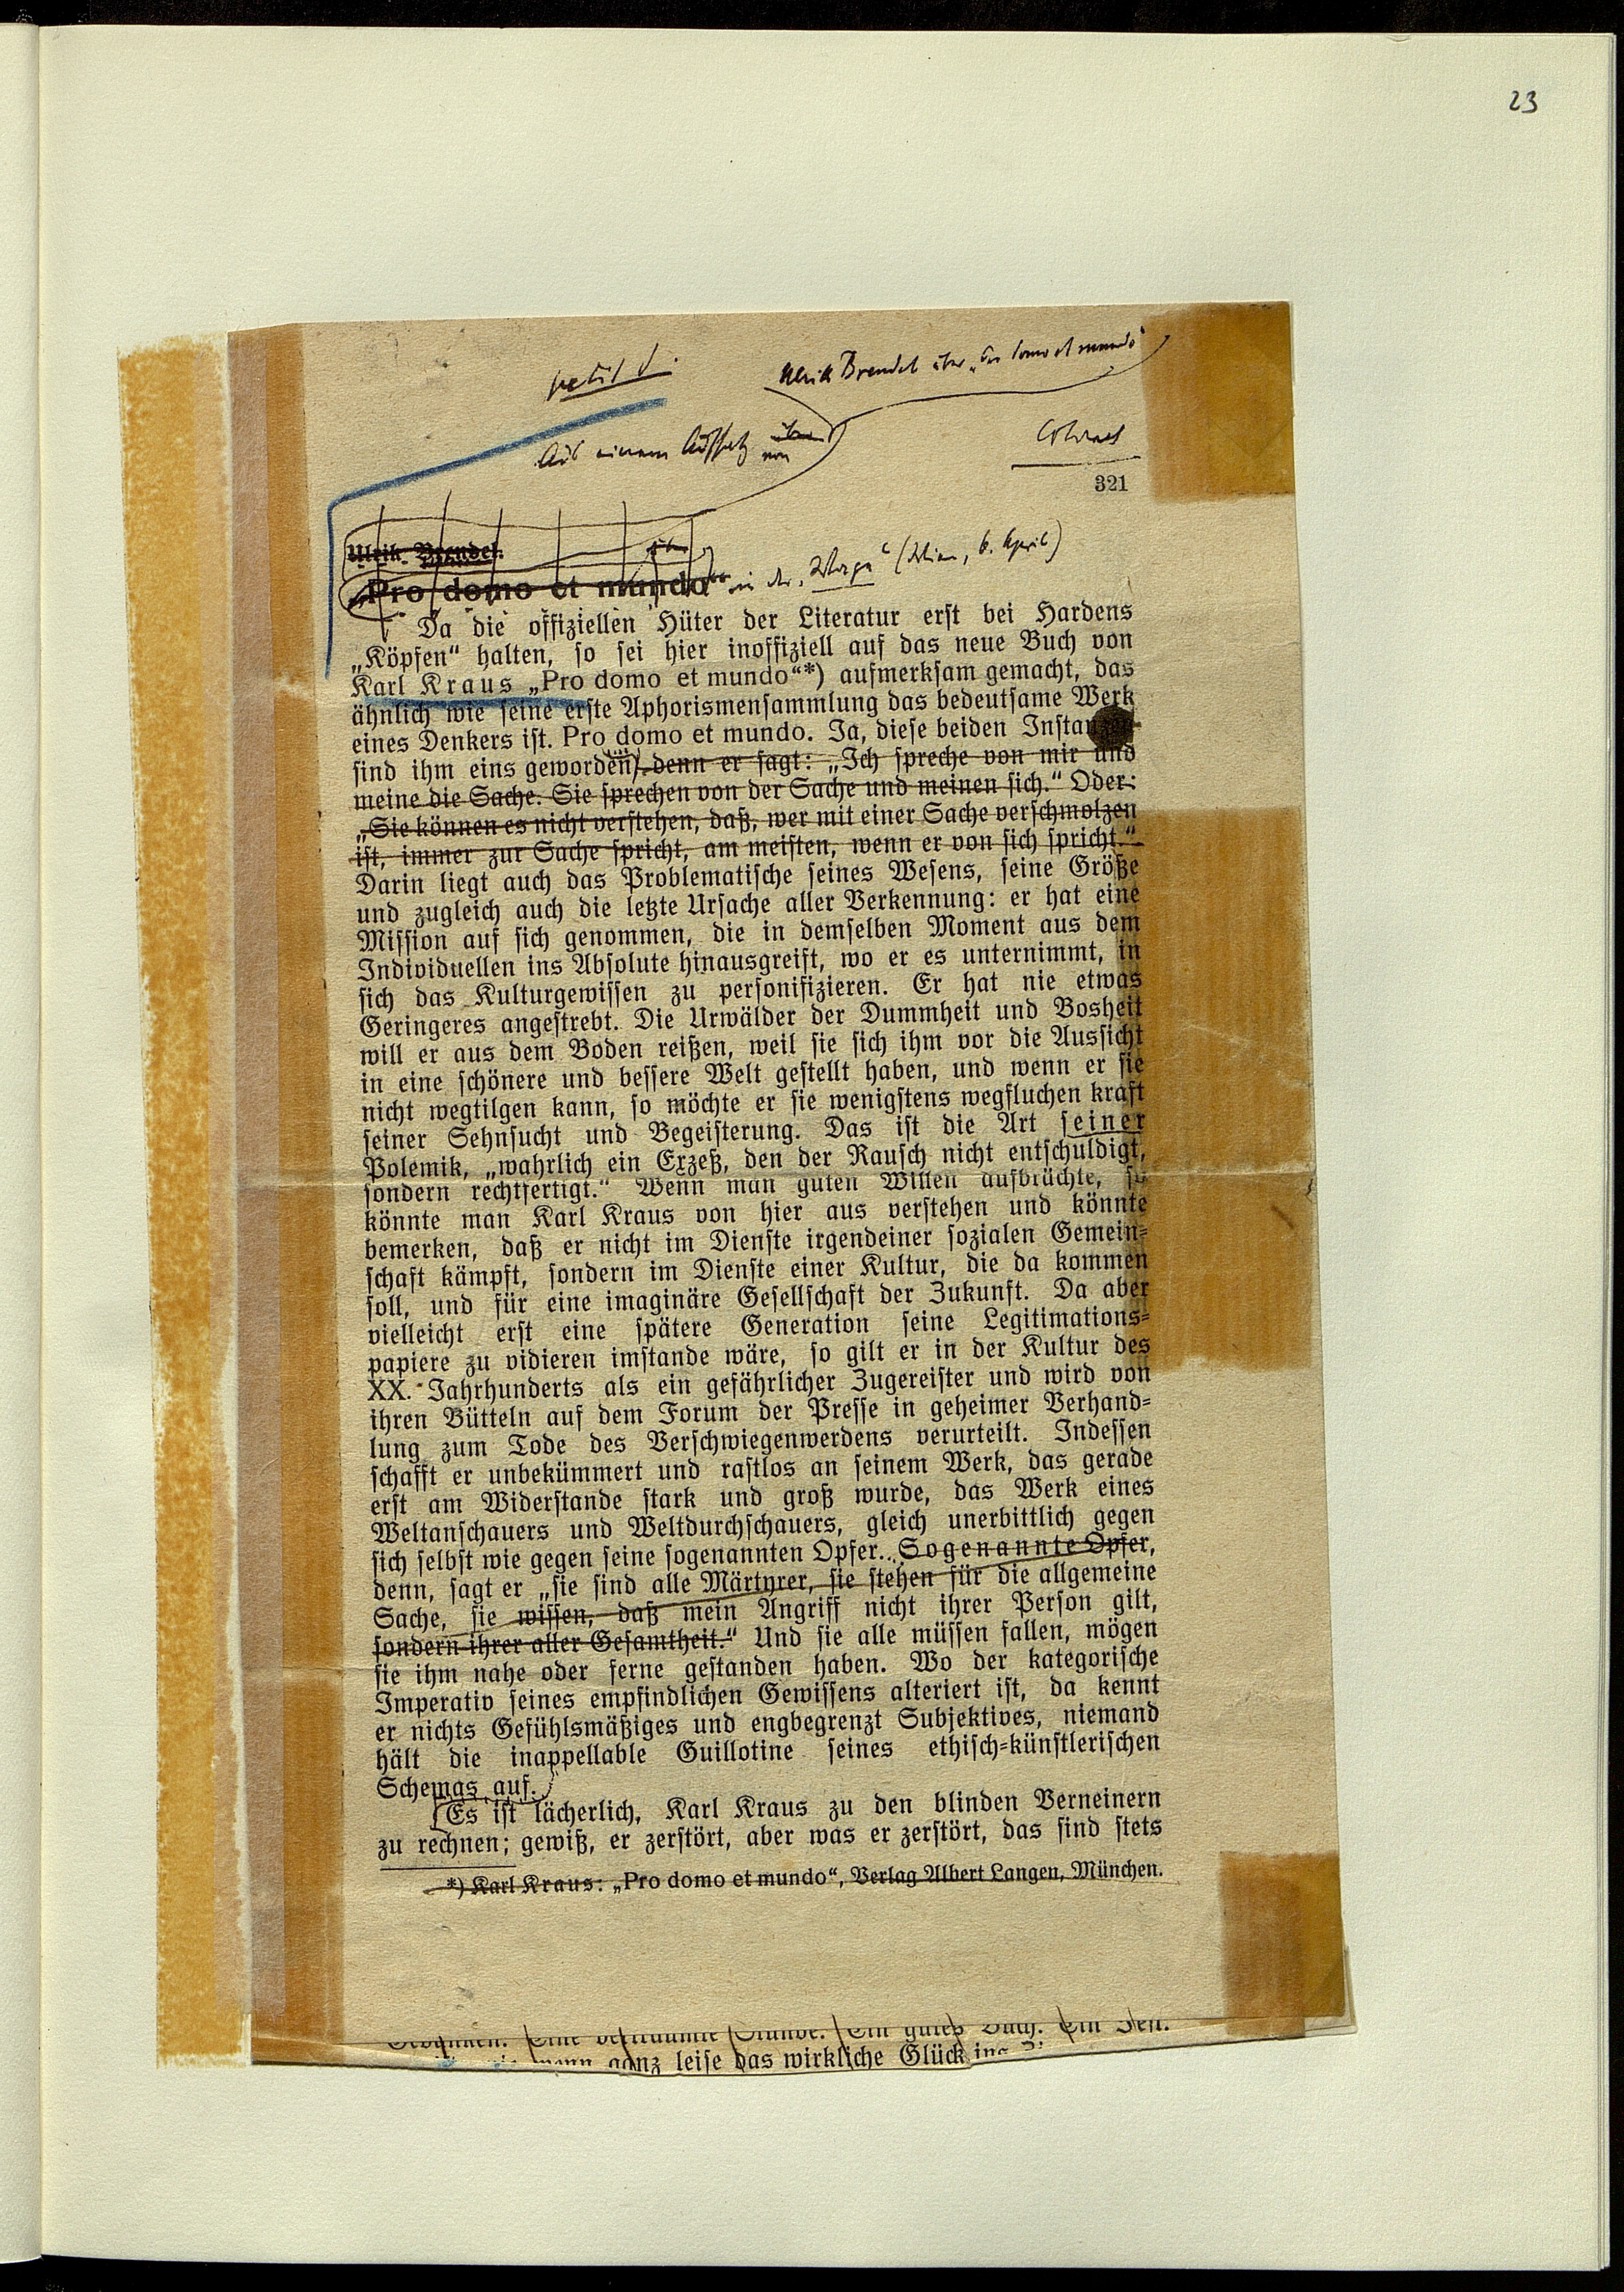 23
petit
Ulrik Brendel über „Pro domo et mundo“
Aus einem Aufsatz über
von
321
Ulrik Brendel.
„Pro domo et mundo“ in der „Wage“ (Wien, 6. April)
Da die offiziellen Hüter der Literatur erst bei Hardens
„Köpfen“ halten, so sei hier inoffiziell auf das neue Buch von
Karl Kraus „Pro domo et mundo“*) aufmerksam gemacht, das
ähnlich wie seine erste Aphorismensammlung das bedeutsame Werk
eines Denkers ist. Pro domo et mundo. Ja, diese beiden Instanzen
sind ihm eins geworden, denn er sagt: „Ich spreche von mir und
meine die Sache. Sie sprechen von der Sache und meinen sich.“ Oder:
„Sie können es nicht verstehen, daß, wer mit einer Sache verschmolzen
ist, immer zur Sache spricht, am meisten, wenn er von sich spricht.“
Darin liegt auch das Problematische seines Wesens, seine Größe
und zugleich auch die letzte Ursache aller Verkennung: er hat eine
Mission auf sich genommen, die in demselben Moment aus dem
Individuellen ins Absolute hinausgreift, wo er es unternimmt, in
sich das Kulturgewissen zu personifizieren. Er hat nie etwas
Geringeres angestrebt. Die Urwälder der Dummheit und Bosheit
will er aus dem Boden reißen, weil sie sich ihm vor die Aussicht
in eine schönere und bessere Welt gestellt haben, und wenn er sie
nicht wegtilgen kann, so möchte er sie wenigstens wegfluchen kraft
seiner Sehnsucht und Begeisterung. Das ist die Art seiner
Polemik, „wahrlich ein Exzeß, den der Rausch nicht entschuldigt,
sondern rechtfertigt.“ Wenn man guten Willen aufbrächte, so
könnte man Karl Kraus von hier aus verstehen und könnte
bemerken, daß er nicht im Dienste irgendeiner sozialen Gemein-
schaft kämpft, sondern im Dienste einer Kultur, die da kommen
soll, und für eine imaginäre Gesellschaft der Zukunft. Da aber
vielleicht erst eine spätere Generation seine Legitimations-
papiere zu vidieren imstande wäre, so gilt er in der Kultur des
XX. Jahrhunderts als ein gefährlicher Zugereister und wird von
ihren Bütteln auf dem Forum der Presse in geheimer Verhand-
lung zum Tode des Verschwiegenwerdens verurteilt. Indessen
schafft er unbekümmert und rastlos an seinem Werk, das gerade
erst am Widerstande stark und groß wurde, das Werk eines
Weltanschauers und Weltdurchschauers, gleich unerbittlich gegen
sich selbst wie gegen seine sogenannten Opfer.. Sogenannte Opfer,
denn, sagt er „sie sind alle Märtyrer, sie stehen für die allgemeine
Sache, sie wissen, daß mein Angriff nicht ihrer Person gilt,
sondern ihrer aller Gesamtheit.“ Und sie alle müssen fallen, mögen
sie ihm nahe oder ferne gestanden haben. Wo der kategorische
Imperativ seines empfindlichen Gewissens alteriert ist, da kennt
er nichts Gefühlsmäßiges und engbegrenzt Subjektives, niemand
hält die inappellable Guillotine seines ethisch-künstlerischen
Schemas auf.
Es ist lächerlich, Karl Kraus zu den blinden Verneinern
zu rechnen; gewiß, er zerstört, aber was er zerstört, das sind stets
*) Karl Kraus: „Pro domo et mundo“, Verlag Albert Langen, München.
Stunde. Ein gutes Buch. Ein
wenn ganz leise das wirkliche Glück ins